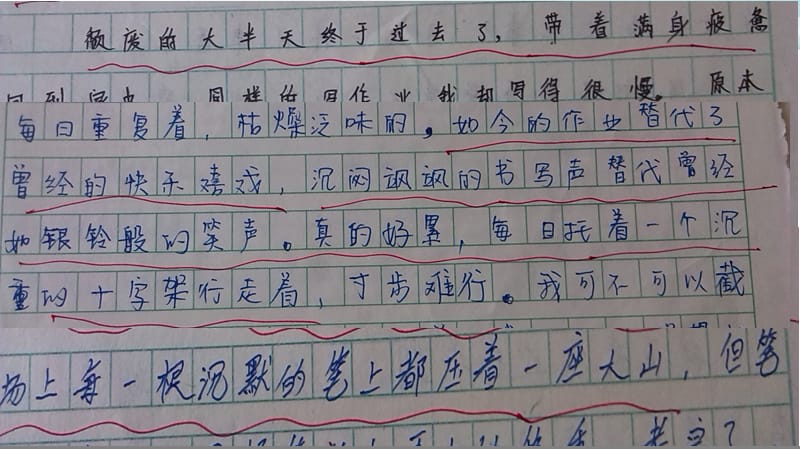 颓废的大半天终于过去了,带着满身疲惫
同样的写作业我却写得很慢。原本
每日重复着,枯燥泛味的,如今的作业替代了
曾经的快乐嬉戏,沉闷飒飒的书写声替代曾经
如银铃般的笑声。真的好累,每日托着一个沉
重的十字架行走着,寸步难行。我可不可以截
场上每一根沉默的笔上都压着一座大山,但笔